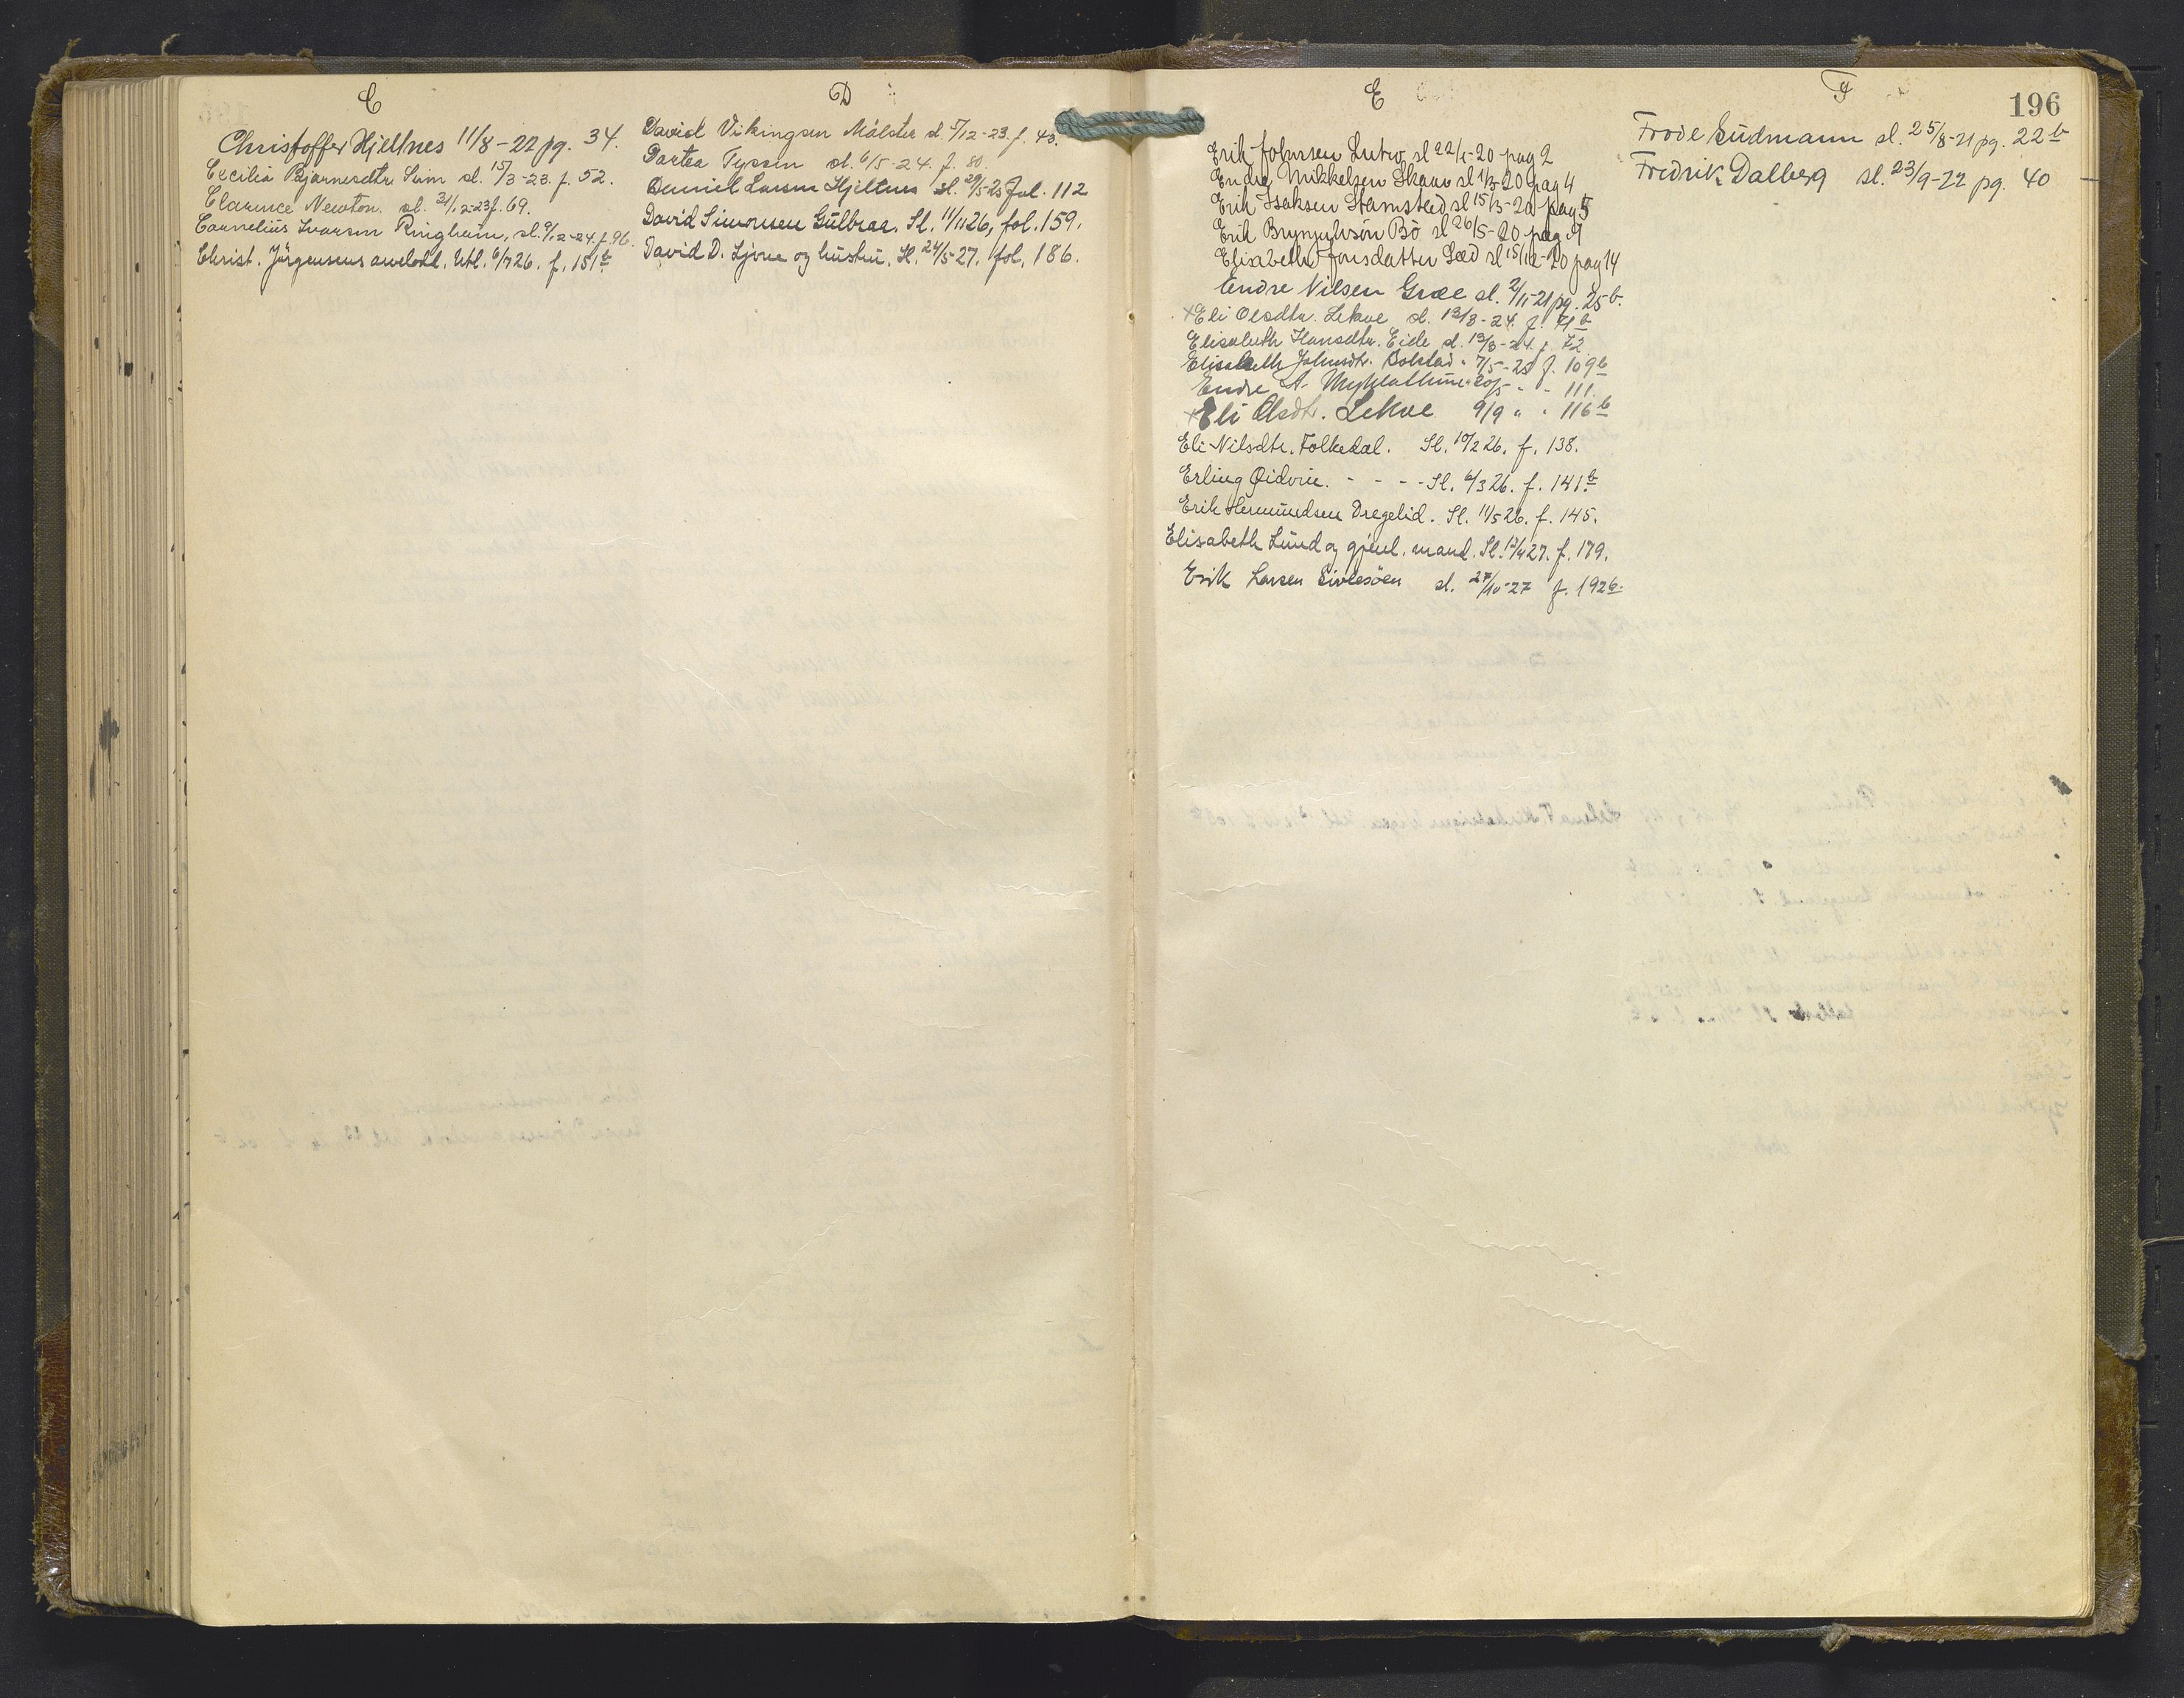 C
Christoffer Hjeltnes 11/8-22 pg. 34.
Cecilia Bjarnesdtr Seim sl. 15/3-23. f. 52.
Clarence Newton. sl. 31/12-23 f. 69.
Cornelius Ivarsen Ringheim, sl. 9/12-24. f. 96.
Christ. Jörgensens avelotl. Utl. 6/7 26. f. 151b
D
David Vikingsen Mölster sl. 5/12-23. f. 43.
Dortea Tyssen sl. 6/5-24. f. 80.
Daniel Larsen Hjeltnes sl. 29/5-25 Fol. 112
David Simonsen Gülbraa. Sl. 11/11 26, fol. 159.
David D. Ljone og hüstrü. Sl. 24/5-27. fol. 186.
E
Erik Johnsen Lutro sl 22/1-20 pag 2
Endre Mikkelsen Skaar sl 1/3-20 pag 4
Erik Isaksen Hamsted sl 15/3-20 pag 5
Erik Brynjulvsön Bö sl 26/5-20 pag 9
Elisabeth Jonsdatter Sæd sl 15/12-20 pag 14
Endre Nilsen Græe sl. 21/11-21 pg. 25 b.
x Eli Olsdtr. Lekve sl. 13/3-24. f. 71b
Elisabeth Hansdtr. Eide sl. 13/3-24. f. 72
Elisabeth Johnsdtr. Bolstad " 7/5-25 f. 109b
Endre A. Mykletthun " 20/5 " " 111.
x Eli Olsdtr. Lekve 9/9 " " 116b
Eli Nilsdtr. Folkedal. Sl. 10/2 26. f. 138.
Erling Øidvin. - - - - Sl. 6/3 26. f. 141.b
Erik Hermündsen Dregelid. Sl. 11/5 26. f. 145.
Elisabeth Lünd og gjenl. mand. Sl. 12/4 27. f. 179.
Erik Larsen sl. 27/10-27 f. 192b.
F
196
Frode Güdmann sl. 25/8-21 pg. 22b
Fredrik Dalberg sl. 23/9-22 pg. 40